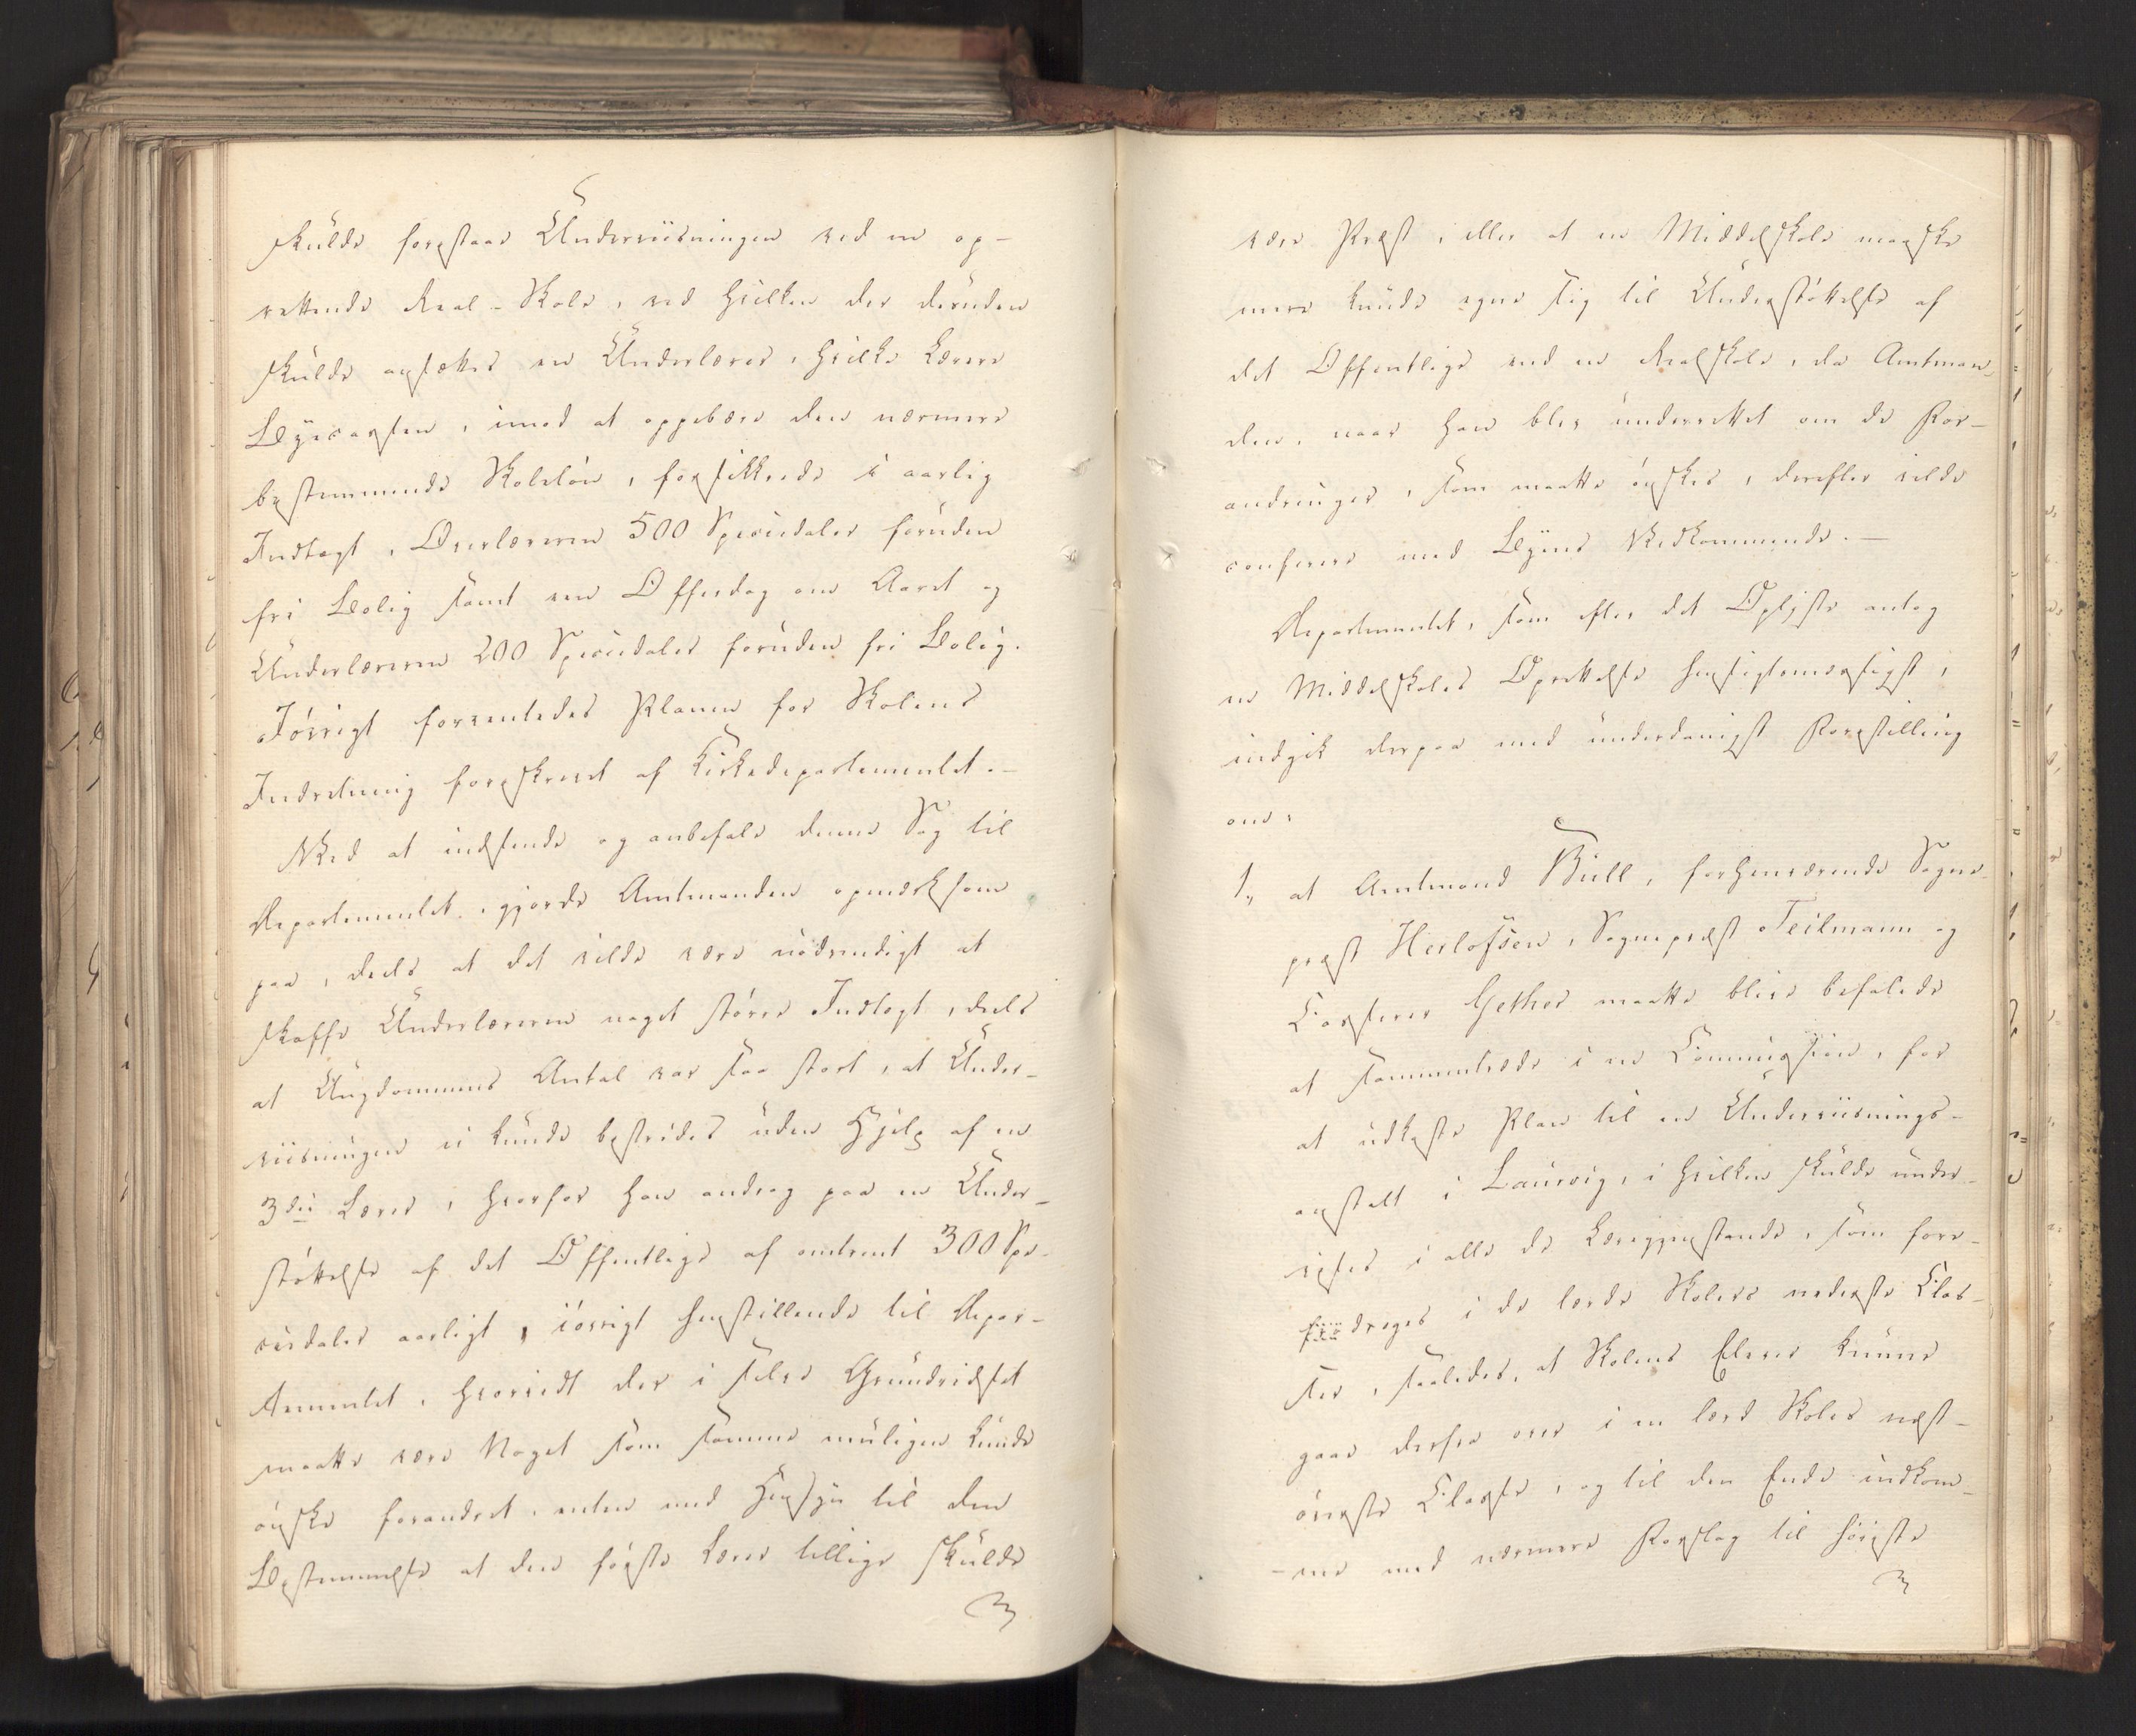 skulde forestaae Underviisningen ved en op-
rettende Real-Skole, ved hvilken der desuden
skulde ansættes en Underlærer, hvilke Lærere
Byecassen, imod at oppebære den nærmere
bestemmende Skoleløn, forsikkrede i aarlig
Indtægt, Overlæreren 500 Speciedaler foruden
fri Bolig samt een Offerdag om Aaret og
Underlæreren 200 Speciedaler foruden fri Bolig.
Iøvrigt forventedes Planen for Skolens
Indretning foreskrevet af Kirkedepartementet.-
Ved at indsende og anbefale denne Sag til
Departementet, gjorde Amtmanden opmærksom
paa, deels at det vilde være nødvendigt at
skaffe Underlæreren noget større Indtægt, deels
at Ungdommens Antal var saa stort, at Under-
viisningen ei kunde bestrides uden Hjelp af en
3die Lærer, hvorfor han androg paa en Under-
støttelse af det Offentlige af omtrent 300 Spe-
ciedaler aarligt, iøvrigt henstillende til Depar-
tementet, hvorvidt der i selve Grundridset
maatte være Noget som samme muligen kunde
ønske forandret, enten med Hensyn til den
Bestemmelse at den første Lærer tillige skulde
være Præst, eller at en Middelskole maaske
mere kunde egne sig til Understøttelse af
det Offentlige end en Realskole, da Amtman-
den, naar han blev underrettet om de For-
andringer, som maatte ønskes, derefter vilde
conferere med Byens Vedkommende.-
Departementet, som efter det Oplyste antog
en Middelskoles Oprettelse hensigtsmæssigst,
indgik derpaa med underdanigst Forestilling
om:
1, at Amtmand Bull, forhenværende Sogne-
præst Herlofsen, Sognepræst Teilmann og
Casserer Gether maatte blive befalede
at sammentræde i en Commission, for
at udkaste Plan til en Underviisnings-
anstalt i Laurvig, i hvilken skulde under-
vises i alle de Læregjenstande, som fore-
drages i de lærde Skolers nederste Clas-
ser, saaledes, at Skolens Elever kunne
gaae derfra over i en lærd Skoles næst-
øverste Classe, og til den Ende indkom-
-me med nærmere Forslag til høieste